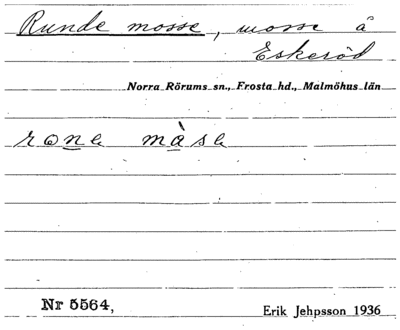 Runde mosse, mosse å
Eskeröd
Norra Rörums sn., Frosta hd., Malmöhus län
rone màse
Nr 5564,
Erik Jehpsson 1936